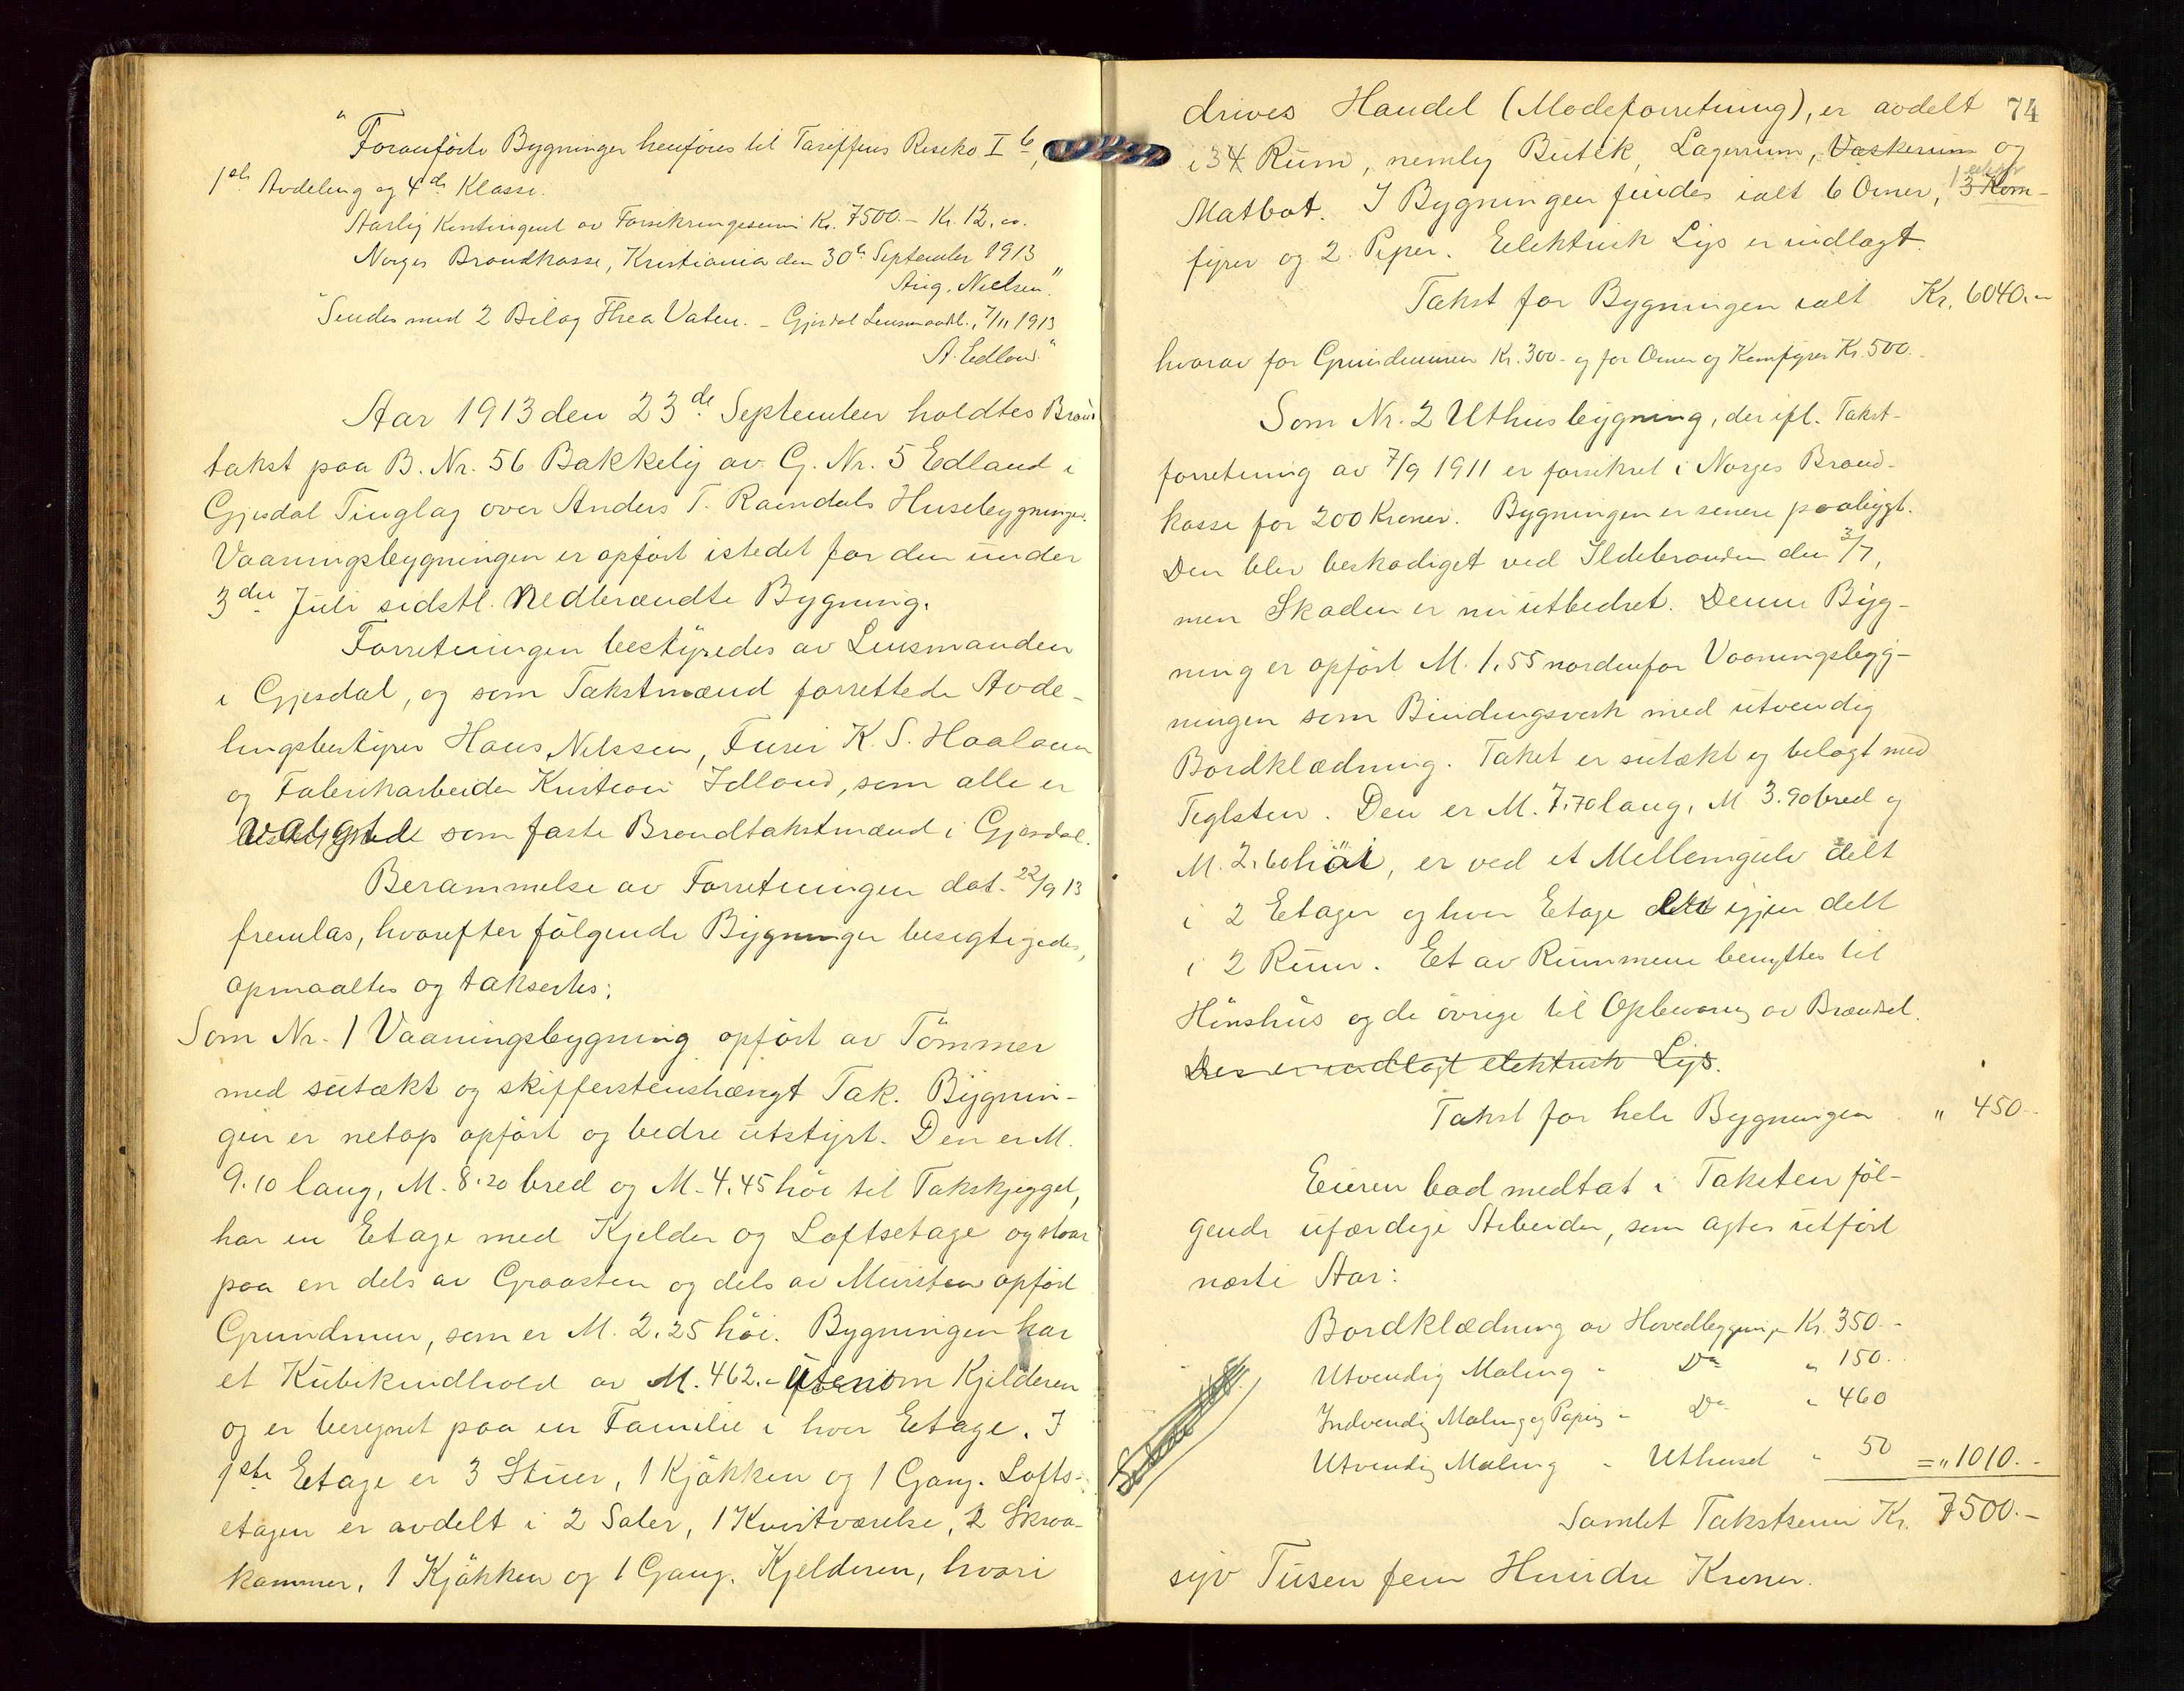 "Foranførte Bygninger henføres til Tariffens Risiko I 6,
1ste Avdeling og 4de Klasse.
Aarlig Kontingent av Forsikringssum Kr. 7500.- Kr. 12,00.
Norges Brandkasse, Kristiania den 30te September 1913
Aug. Nielsen."
"Sendes med 2 Bilag Thea Vatne. - Gjesdal Lensmandsb., 7/11 1913
A. Edland."
Aar 1913 den 23de September holdtes Brand
takst paa B. Nr. 56 Bakkelij av G. Nr. 5 Edland i
Gjesdal Tinglag over Anders T. Ravndals Husebygninger.
Vaaningsbygningen er opført istedet for den under
3die Juli sidstl. Nedbrændte Bygning.
Forretningen bestyredes av Lensmanden
i Gjesdal, og som Takstmænd forrettede Avde-
lingsbestyrer Hans Nilssen, Furer K. S. Haaland
og Fabrikarbeider Kristian Idland, som alle er
valgte som faste Brandtakstmænd i Gjesdal.
Berammelse av Forretningen dat. 22/9 13
fremlas, hvorefter følgende Bygninger besigtigedes,
opmaaltes og taksertes:
Som Nr. 1 Vaaningsbygning opført av Tømmer
med sutækt og skifferstenshængt Tak. Bygnin-
gen er netop opført og bedre utstyrt. Den er M.
9.10 lang, M. 8.20 bred og M. 4.45 høi til Takskjegget,
har en Etage med Kjelder og Loftsetage og staar
paa en dels av Graasten og dels av Mursten opført
Grundmur, som er M. 2.25 høi. Bygningen har
et Kubikindhold av M. 462.- Utenom Kjelderen
og er beregnet paa en Familie i hver Etage. I
1ste Etage er 3 Stuer, 1 Kjøkken og 1 Gang. Lofts-
etagen er avdelt i 2 Saler, 1 Kvistværelse, 2 Skraa-
kammer, 1 Kjøkken og 1 Gang. Kjelderen, hvori
74
drives Handel (Modeforretning), er avdelt
i 3 4 Rum, nemlig Butik, Lagerrum, Vaskerum og
Matbot. I Bygningen findes ialt 6 Omer, 3 Kom-
fyrer og 2 Piper. Elektrisk Lys er indlagt.
Takst for Bygningen ialt Kr. 6040.-
hvorav for Grundmuren Kr. 300.- og for Omer og Komfyrer Kr. 500.-
Som Nr. 2 Uthusbygning, der ifl. Takst-
forretning av 7/9 1911 er forsikret i Norges Brand-
kasse for 200 Kroner. Bygningen er senere paabygt.
Den blev beskadiget ved Ildebranden den 3/7,
men Skaden er nu utbedret. Denne Byg-
ning er opført M. 1.55 nordenfor Vaaningsbygg-
ningen som Bindingsverk med utvendig
Bordklædning. Taket er sutækt og belagt med
Teglsten. Den er M. 7.70 lang, M 3.90 bred og
M. 2.60 høi, er ved et Mellemgulv delt
i 2 Etager og hver Etage igjen delt
i 2 Rum. Et av Rummene benyttes til
Hønshus og de øvrige til Opbevaring av Brændsel.
Der er indlagt elektrisk Lys.
Takst for hele Bygningen " 450.-
Eieren bad medtat i Taksten føl-
gende ufærdige Arbeider, som agtes utført
næste Aar:
Bordklædning av Hovedbygning Kr. 350.-
Utvendig Maling " Do " 150.-
Indvendig Maling og Papir " Do " 460
Utvendig Maling " Uthuset " 50 = " 1010.-
Samlet Takstsum Kr. 7500.-
syv Tusen fem Hundre Kroner.